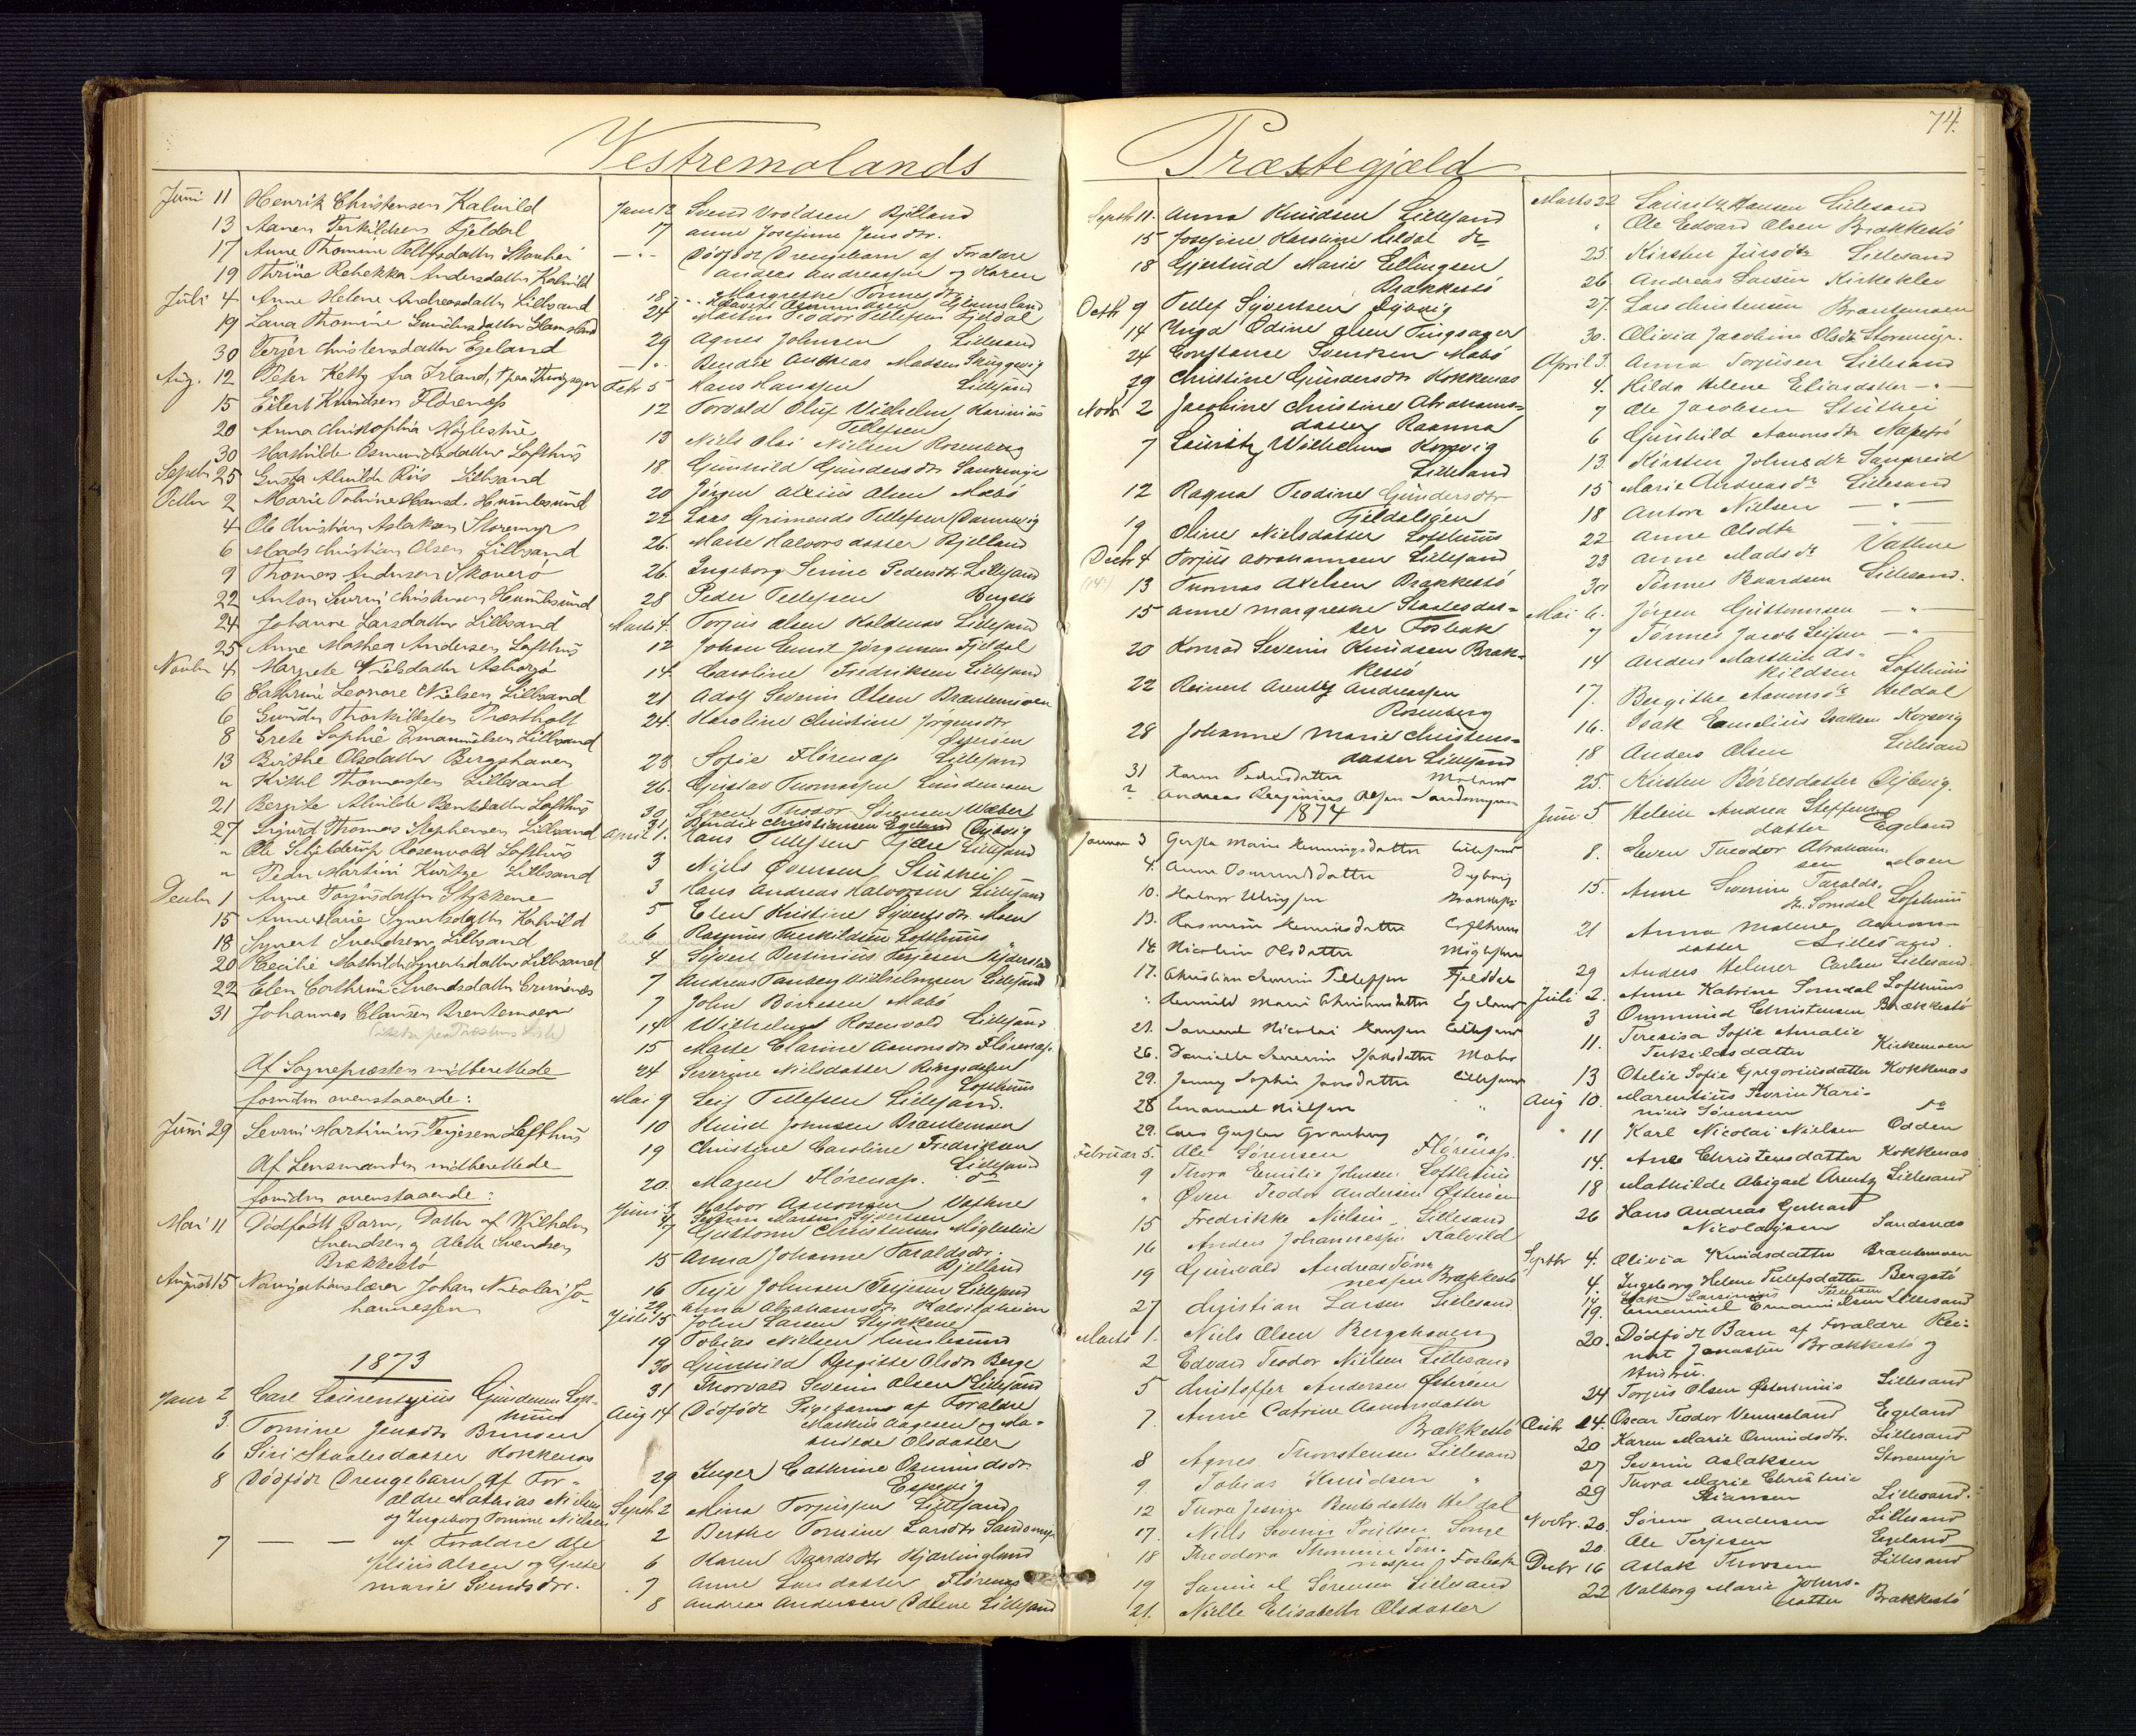 74.
Vestremolands Præstegjæld
Juni 11 Henrik Christensen Kalvild
13 Aanen Terkildsen Fjeldal
17 Anne Thomine Tellefsdatter
19 Thrine Rebekka Andersdatter Kalvild
Juli 4 Anne Helene Andreasdatter Lillesand
19 Lava Thomine Gundersdatter Glamsland
30 Terjer Christensdatter Egeland
Aug. 12 Peter Kelly fra Irland, † paa Thingsager
15 Eilert Knudsen Flørenæs
20 Anna Christophia Møglestue
30 Mathilde Osmundsdatter Lofthus
Septbr 25 Gusta Alvilde Riis Lillesand
Octbr 2 Marie Tobine Hansd. Humlesund
4 Ole Christian Aslaksen Storemyr
6 Mads Christian Olsen Lillesand
9 Thomas Andersen Skauerø
22 Anton Severin Christensen Humlesund
24 Johanne Larsdatter Lillesand
25 Anne Mathea Andersen Lofthus
Novbr 4 Margrete Nielsdatter
6 Cathrine Leonore Nielsen Lillesand
6 Gunder Thorkildsen Præstholt
8 Grete Sophie Emanuelsen Lillesand
13 Birthe Olsdatter Bergshaven
" Kittil Thomassen Lillesand
21 Bergite Alvilde Bentsdatter Lofthus
27 Sigurd Thomas Stephensen Lillesand
" Ole Schjelderup Rosenvold Lofthus
" Peder Martin Lillesand
Decbr 1 Anne Torjusdatter Stykkene
15 Anne Marie Syvertsdatter Kalvild
18 Syvert Svendsen Lillesand
20 Cecilie Mathilde Syvertsdatter Lillesand
22 Elen Cathrine Svendsdatter Grimenes
31 Johannes Clausen Brentemoen
Af Sognepræsten indberettede
foruden ovenstaaende:
Juni 29 Severin Martinius Terjesen Lofthus
Af Lensmanden indberettede
foruden ovenstaaende:
Mai 11 Dødfødt Barn, Datter af Wilhelm
Svendsen og Aleth Svendsen
Brækkestø
August 15 Navigationslærer Johan Nicolai Jo-
hannessen
1873
Janr 2 Carl Laurentsius Gundersen Loft-
huus
3. Tomine Jensdtr Brunoen
6 Siri Staalesdatter Kokkenes
8 Dødfødt Drengebarn af For-
ældre Mathias Nielsen
og Ingeborg Tomine Nielsen
7 — — af Forældre Ole
Olsen og Grete
Marie Svendsdtr.
Janr 12 Svend Bjelland
17 Anne Josefine Jensdtr.
— " Dødfødt Drengebarn af Forældre
Andreas Andreassen og Karen
18 Margrethe Tønnesdtr
24 Martin Teodor Tellefsen Fjeldal
29 Agnes Johnsen Lillesand
— " Bendix Andreas Madsen
Febr 5 Hans Hanssen Lillesand
12 Torvald Oluf Vilhelm Karinius
Tellefsen
13 Niels Olai Nielsen Rosenberg
18. Gunhild Gundersdtr Sandsmyr
20 Jørgen Alexius Olsen Mæbø
22 Lars Grimends Tellefsen
26. Marte Halvorsdatter Bjelland
26. Ingeborg Serine Pedersdtr Lillesand
28 Peder Tellefsen
Marts 4. Torjus Olsen Kaldenes Lillesand
12 Johan Ernst Jørgensen Fjeldal
14. Caroline Fredriksen Lillesand
21 Adolf Severin Olsen Brautemoen
24. Karoline Christine Jørgensdtr
Østerøen
23. Sofie Flørenæs Lillesand
26. Gustav Thomassen
30 Søren Thodor Sørensen
31 Bendix Christiansen Egeland
April 1. Hans Tellefsen Kjære Lillesand
3 Niels Evensen Stuehei
3 Hans Andreas Halvorsen Lillesand
5 Elen Kristine Syvertsdtr Moen
6 Rasmus Terkildsen Lofthuus
4 Syvert Bertinius Terjesen
7 Andreas Tanberg Vilhelmsen Lillesand
7 John Børresen Mabø
14 Wilhelm Rosenvold Lillesand
15 Marte Clarine Aanonsdtr Flørenæs.
24 Severine Nielsdatter
Lofthuus
Mai 9 Leif Tellefsen Lillesand.
10 Knud Johnsen Brautemoen
19 Christine Caroline Fredriksen
Lillesand
20. Magen Flørenæs. do
Juni 3 Halvor Aanonsen Vathne
7 Guttorm Christensen Møglestue
15 Anna Johanne Taraldsdtr.
Bjelland
16 Terje Johnsen Terjesen Lillesand
29 Anna Abrahamsdtr Kalvildheien
Juli 15 John Larsen Stykkene
19 Tobias Nielsen Humlesund
30 Gunhild Birgitte Olsdtr Berge
31 Thorvald Severin Olsen Lillesand
Aug 14 Dødfødt Pigebarn af Forældre
Markus Aagesen og Ma-
Olsdatter
29 Inger Cathrine Osmundsdtr.
Espevig
Septbr 2 Mina Torjussen Lillesand
2 Berthe Tomine Larsdtr Sandsmyr
6 Karen Baardsdtr Hjortinglund
7 Anne Larsdatter Flørenæs
8 Andreas Andersen Lillesand
Septbr 11. Anna Knudsen Lillesand
15 Josefine Karoline Lildal do
18 Gjertrud Marie Ellingsen
Brækkestø
Octbr 9 Tellef Syvertsen Dybvig
14 Inga Odine Olsen Tingsager
24 Constance Svendsen Mabø
29 Christine Gundersdtr Kokkenæs
Novbr 2 Jacobine Christine Abrahams-
datter
7 Lauritz Wilhelm Korsvig
Lillesand
12 Ragna Teodine Gundersdtr
Fjeldalsøen
19 Oline Nielsdatter Lofthuus
Decbr 4 Torjus Abrahamsen Lillesand
13 Thomas Axelsen Brækkestø
15 Anne Margrethe Staalesdat-
ter Fosbæk
20 Konrad Severin Knudsen Bræk-
kestø
22 Reinert Arentz Andreassen
Rosenberg
28 Johanne Marie Christens-
datter Lillesand
31 Karen Pedersdatter Moland
? Andreas Olsen Sandsmyren
1874
Januar 3 Marie Henningsdatter Lillesand
4. Anne Osmundsdatter Dybvig
10. Halvor Brækkestø
13. Rasmine Lofthuus
14. Nicoline Olsdatter Møglestue
17. Christian Severin Tellefsen Fjeldal
" Marie Christensdatter Egeland
21. Samuel Nicolai Hansen Lillesand
26. Danielle Severine Mabø
29. Jenny Sophie Jansdatter Lillesand
28 Emanuel Nielsen "
29. Lars Gustav Granberg
Februar 5. Ole Sørensen Flørenæs.
9 Thora Emilie Johnsen Lofthuus
" Øven Teodor Andersen Østerøen
15 Fredrikke Nielsen Lillesand
16 Anders Johannessen Kalvild
19 Gunvald Andreas Tøn-
nessen Brækkestø
27 Christian Larsen Lillesand
Marts 1. Niels Olsen Bergshaven
2 Edvard Teodor Nielsen Lillesand
5 Christoffer Andersen Østerøen
7. Anne Catrine Aanonsdatter
Brækkestø
8 Agnes Thorstensen Lillesand
9 Tobias Knudsen "
12 Thora Jesine Bentsdatter Heldal
17. Niels Severin Poulsen
18 Theodora Thomine Tøn-
nessen Fosbæk
19 Samuel Sørensen Lillesand
21. Nille Elisabeth Olsdatter
Marts 22 Lauritz Hansen Lillesand
" Ole Edvard Olsen Brækkestø
25 Kirsten Jensdtr Lillesand
26 Andreas Larsen Kirkekleo
27. Lars Christensen Brautemoen
30. Olivia Jacobine Olsdtr Storemyr.
April 3. Anna Torjusen Lillesand
4. Hilda Helene Eliasdatter — " —
7 Ole Jacobsen Stuehei
6 Gunhild Aanonsdtr
13. Kirsten Johnsdtr
15 Marie Andreasdtr Lillesand
18 Anton Nielsen — " —
22 Anne Olsdtr — " —
23 Anne Madsdtr Vathne
30 Tønnes Baardsen Lillesand.
Mai 6. Jørgen Guttormsen — " —
7 Tønnes Jacob Leifsen — " —
14 Anders Matthis As-
kildsen Lofthuus
17. Bergithe Aanonsdtr Heldal
16. Isak Cornelius Isaksen Korsvig
18 Anders Olsen Lillesand
25. Kirsten Børresdatter Dybvig.
Juni 5 Helene Andrea Steffens-
datter Egeland
8. Even Theodor Abraham-
sen Moen
15. Anne Severine Taralds-
dtr. Somdal Lofthuus
21 Anna Malene Aanons-
datter Lillesand.
29 Anders Helmer Carlsen Lillesand.
Juli 2. Anne Katrine Somdal Lofthuus
3 Ommund Christensen Brækkestø
11. Teresisa Sofie Amalie
Terkildsdatter Kirkemoen
13 Otelie Sofie Gregoriusdatter Kokkenæs
Aug 10. Marentius Severin Kari-
nius Sørensen do
11 Karl Nicolai Nielsen Odden
14. Ane Christensdatter Kokkenæs
18 Mathilde Abigael Arentz Lillesand
26 Hans Andreas Gerhard
Nicolaysen Sandsnæs
Septbr 4. Olivia Knudsdatter Brautemoen
4. Ingeborg Helene Tellefsdatter Bergstø
19. Emanuel Emanuelsen Lillesand
20. Dødfødt Barn af Forældre Rei-
nert Jonassen Brækkestø og
Hustru.
24 Torjus Olsen Østerhuus Lillesand
Octbr 14. Oscar Teodor Vennesland Egeland
20 Karen Marie Osmundsdtr. Lillesand
27 Severin Aslaksen Storemyr
29 Thora Marie Christine
Stiansen Lillesand.
Novbr. 20. Søren Andersen Lillesand
20. Ole Terjesen Egeland
Decbr 16 Aslak Thorsen Lillesand
22 Valborg Marie Johns-
datter Brækkestø